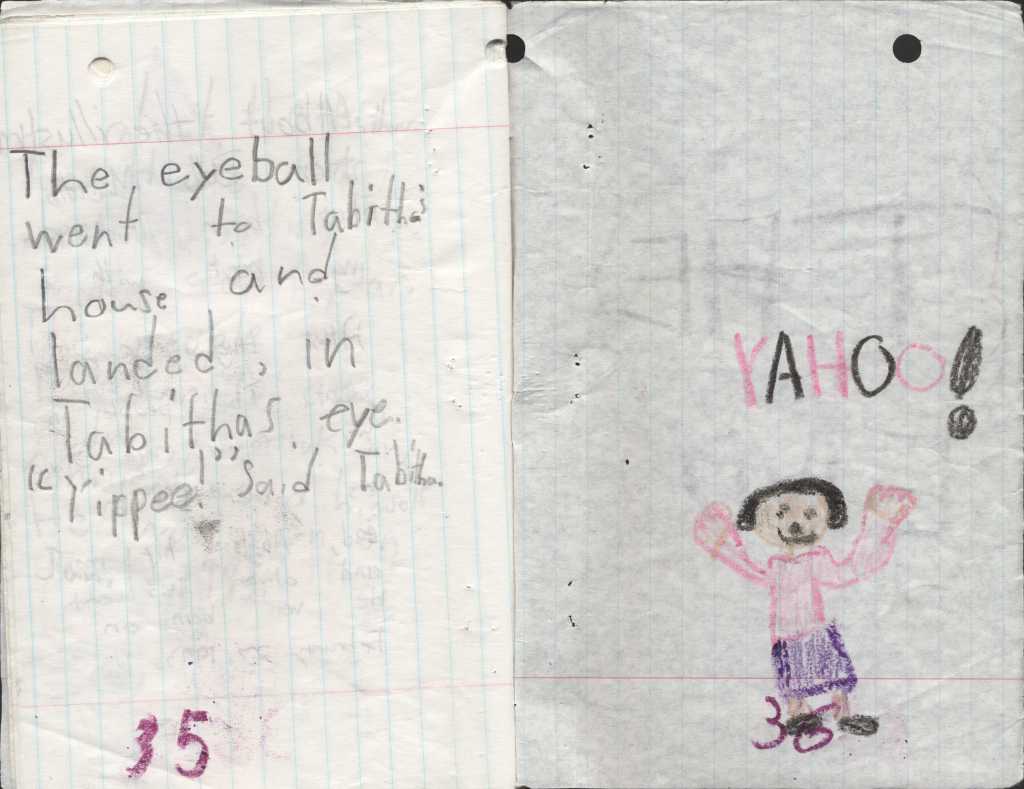 The eyeball
went to Tabitha's
house and
landed, in
Tabithas eye.
"Yippee!" said Tabitha.
35
YAHOO!
36